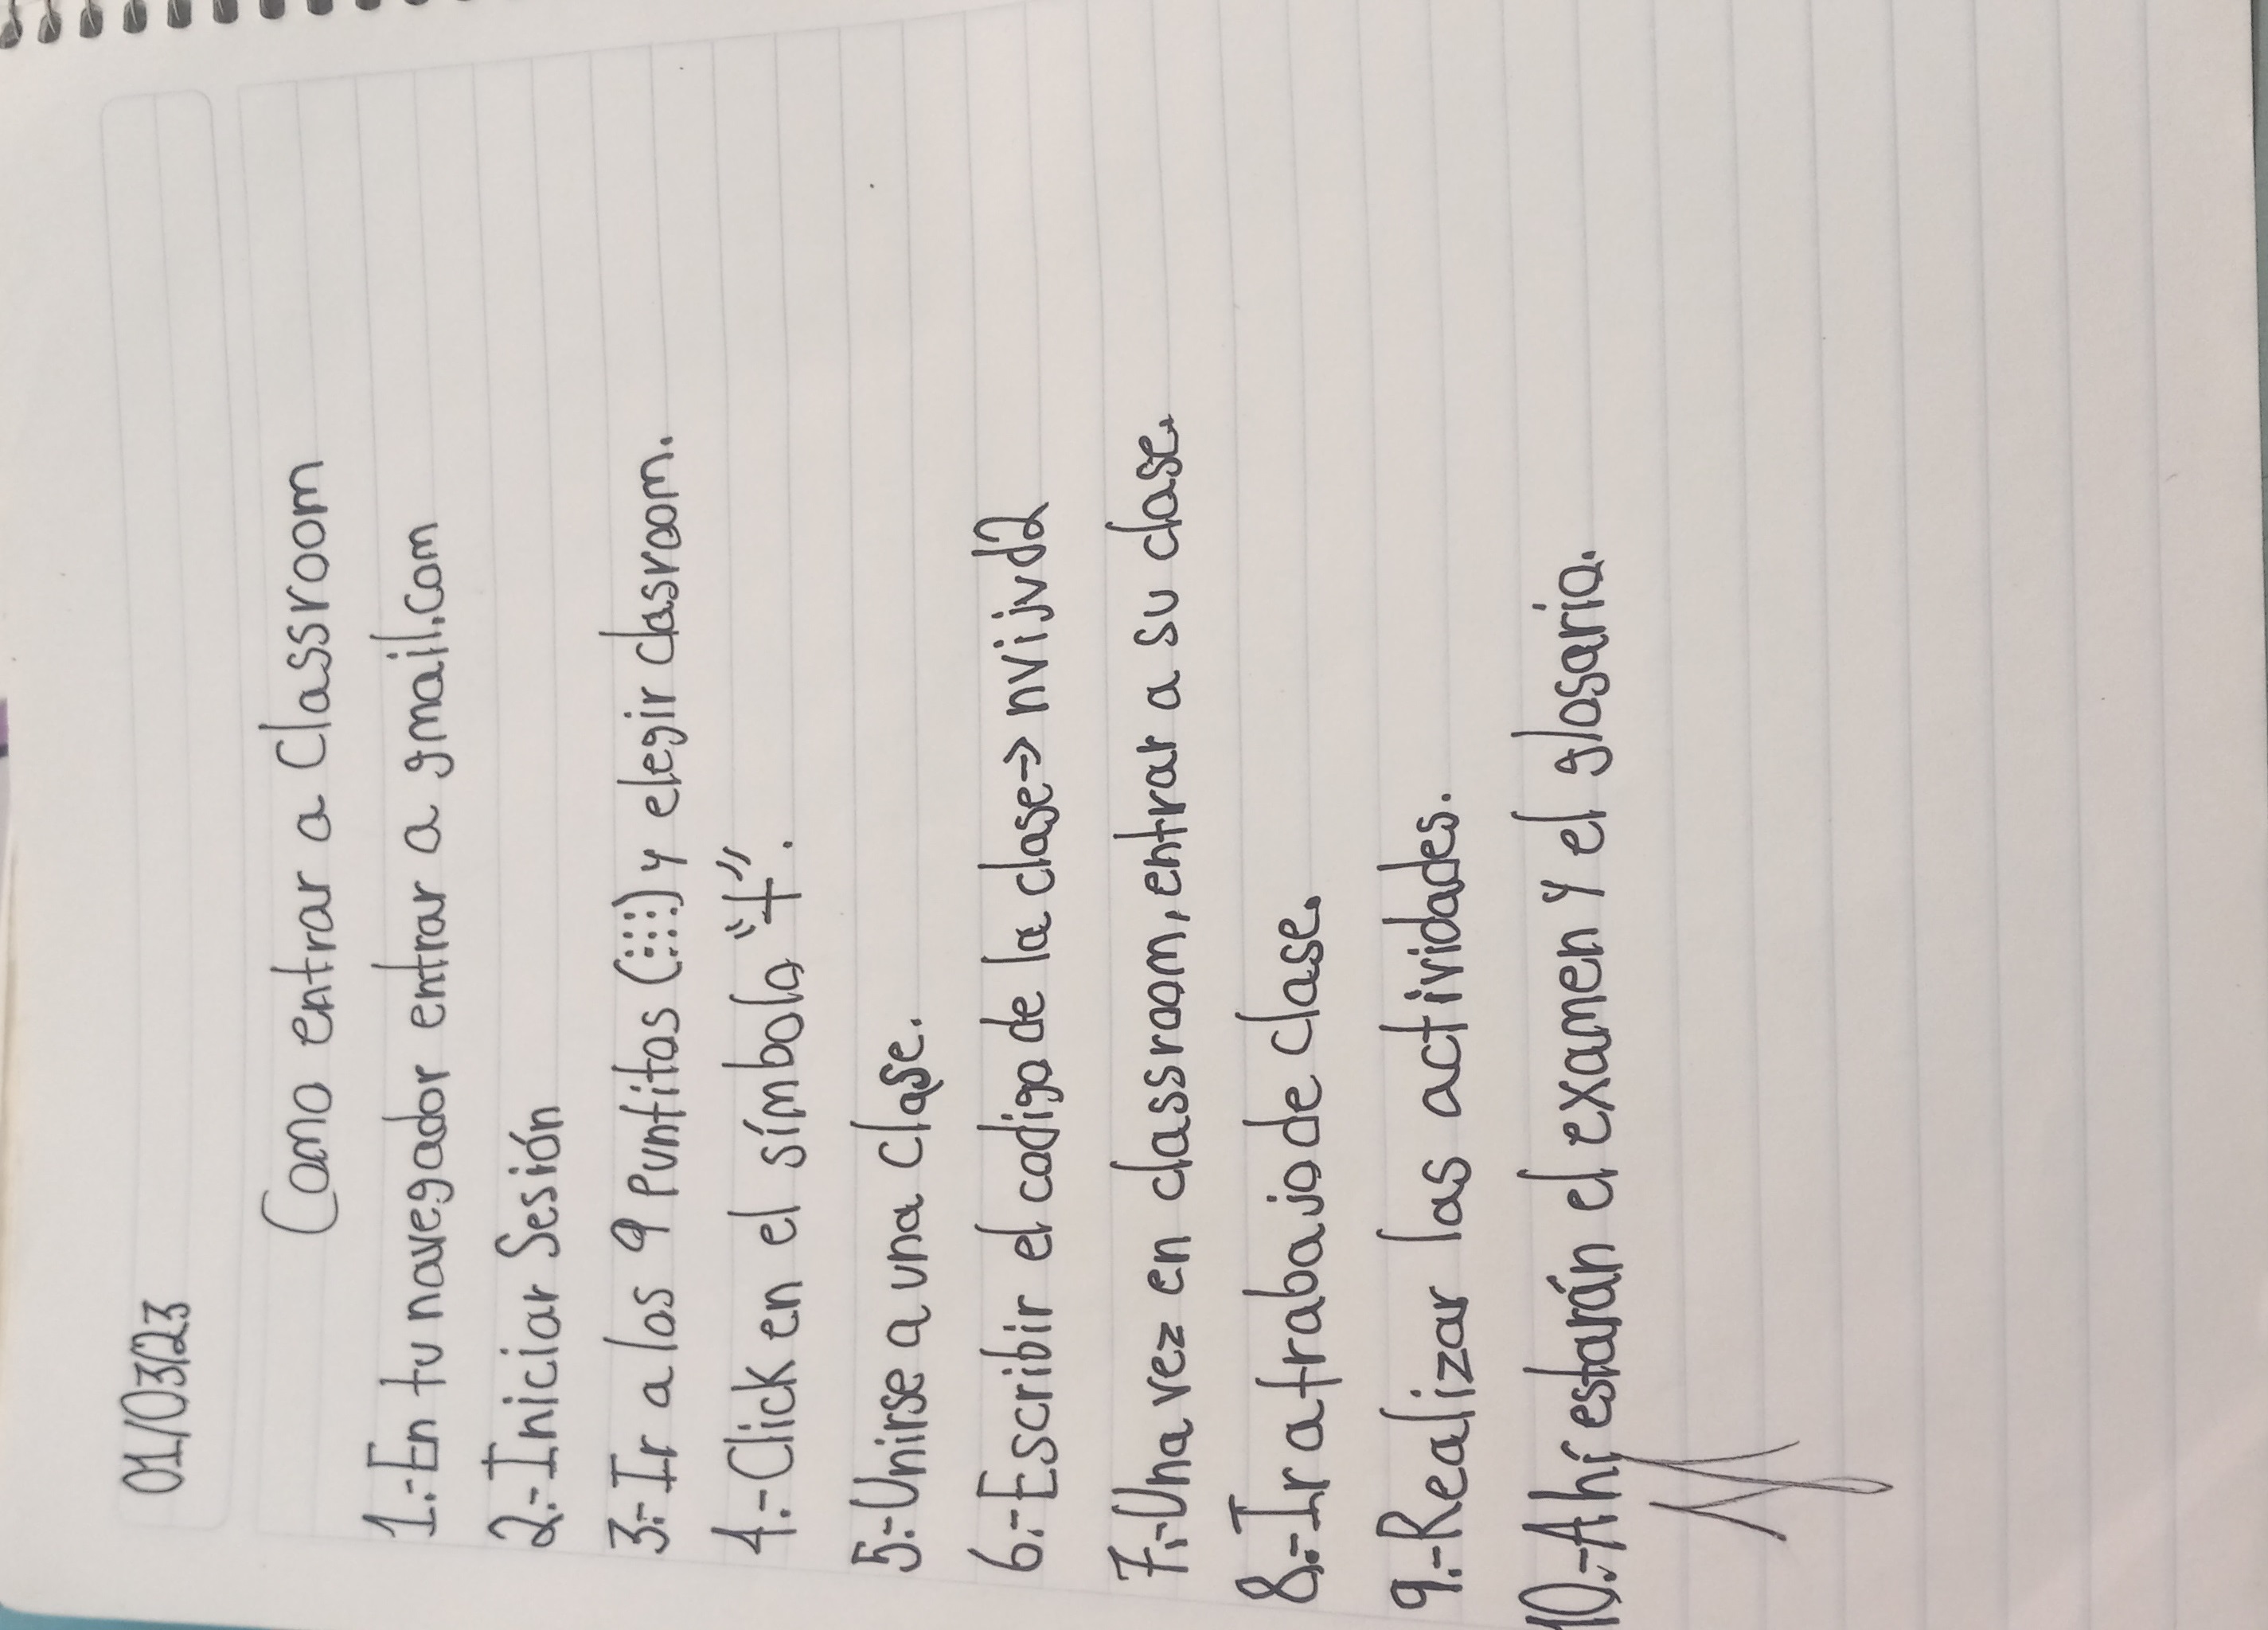 01/03/23
Como entrar a Classroom
1.-En tu navegador entrar a gmail.com
2.-Iniciar Sesión
3.-Ir a los 9 Puntitos (:::) y elegir clasroom.
4.-Click en el símbolo "+".
5.-Unirse a una clase.
6.-Escribir el codigo de la clase→ nvijvd2
7.-Una vez en classroom, entrar a su clase.
8.-Ir a trabajo de clase.
9.-Realizar las actividades.
10.-Ahí estarán el examen y el glosario.